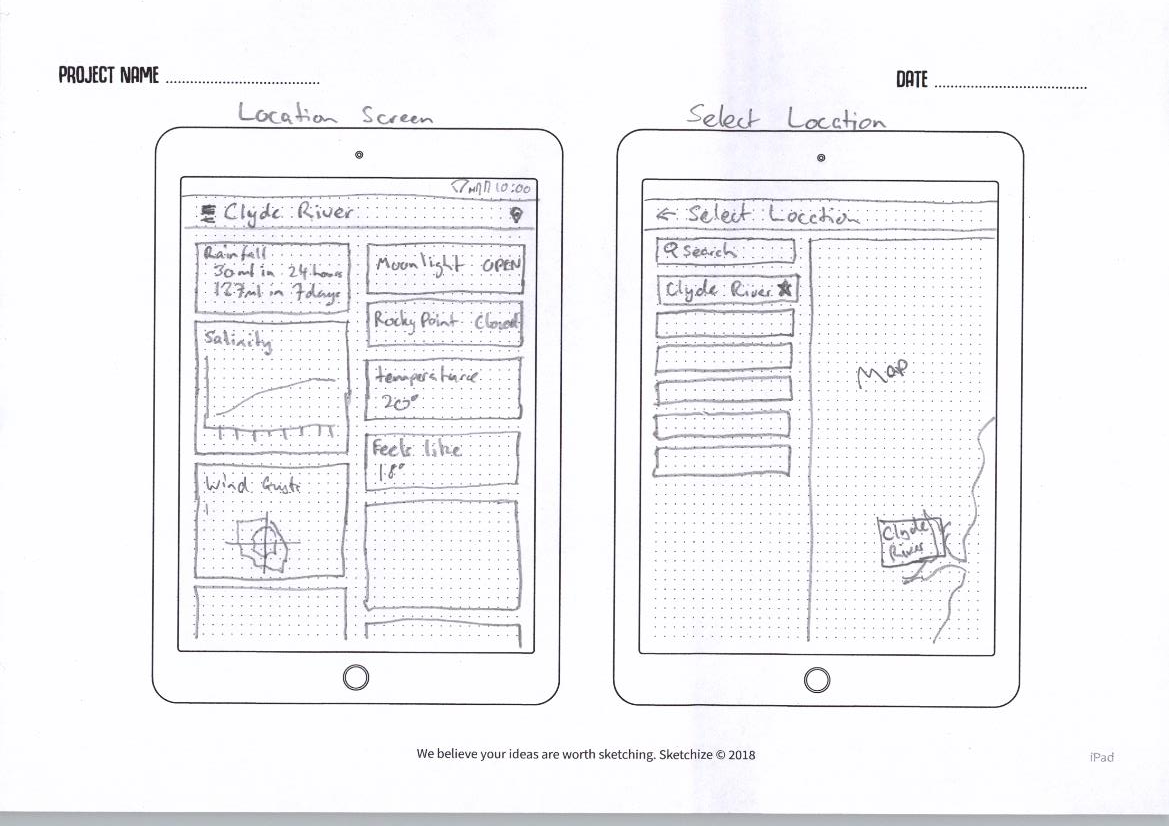 PROJECT NAME
DATE
Location Screen
10:00
Clyde River
Rainfall
30ml in 24 hours
127ml in 7days
Salinity
Wind Gusts
Moonlight OPEN
Rocky Point Closed
temperature
20°
Feels like
18°
Select Location
← Select Location
Search
Clyde River ★
Map
Clyde
River
We believe your ideas are worth sketching. Sketchize © 2018
iPad